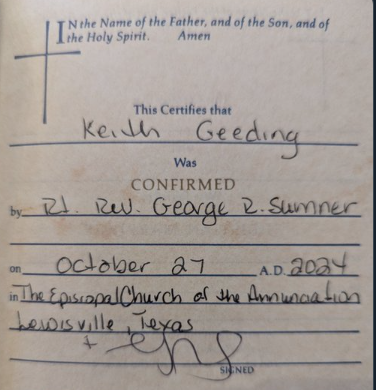 IN the Name of the Father, and of the Son, and of
the Holy Spirit. Amen
This Certifies that
Keith Geeding
Was
CONFIRMED
by Rt. Rev. George R. Sumner
on October 27 A.D. 2024
in The Episcopal Church of the Annunciation
Lewisville, Texas
+
SIGNED